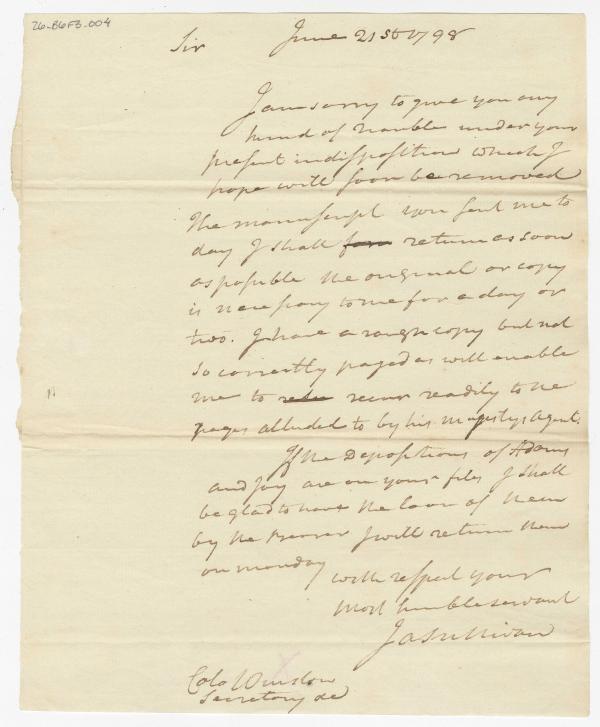 26-B6F3-004
Sir June 21st 1798
I am sorry to give you any
kind of trouble under your
present indisposition which I
hope will soon be removed
The manuscript you sent me to
day I shall return as soon
as possible the original or copy
is necessary to me for a day or
two. I have a rough copy but not
so correctly paged as will enable
me to recur readily to the
pages alluded to by his majestys Agent.
If the Depositions of Adams
and Joy are on your files I shall
be glad to have the loan of them
by the Bearer I will return them
on monday
with respect your
most humble servant
Ja Sullivan
Colo Winslow
Secretary &c